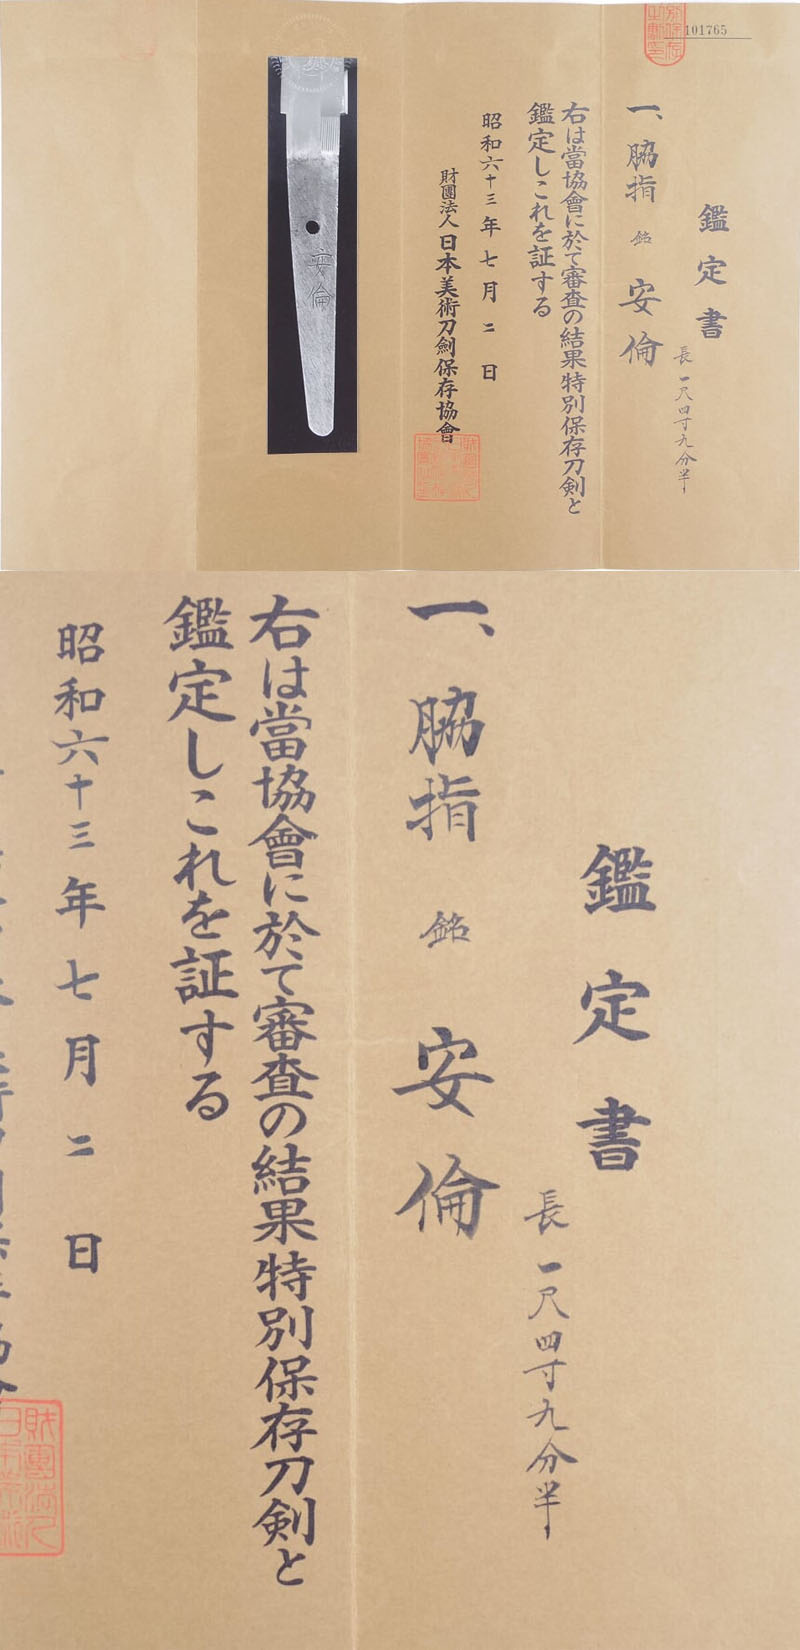 101765
鑑定書
長一尺四寸九分半
一、脇指 銘 安倫
右は當協會に於て審査の結果特別保存刀剣と
鑑定しこれを証する
昭和六十三年七月二日
財團法人日本美術刀劍保存協會
安倫
鑑定書
長一尺四寸九分半
一、脇指 銘 安倫
右は當協會に於て審査の結果特別保存刀剣と
鑑定しこれを証する
昭和六十三年七月二日